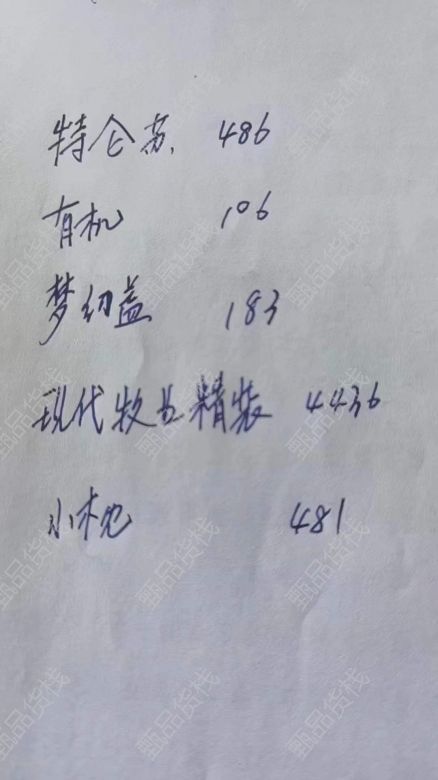 特仑苏 486
有机 106
梦幻盖 183
现代牧业精装 4436
小枕 481
甄品货栈